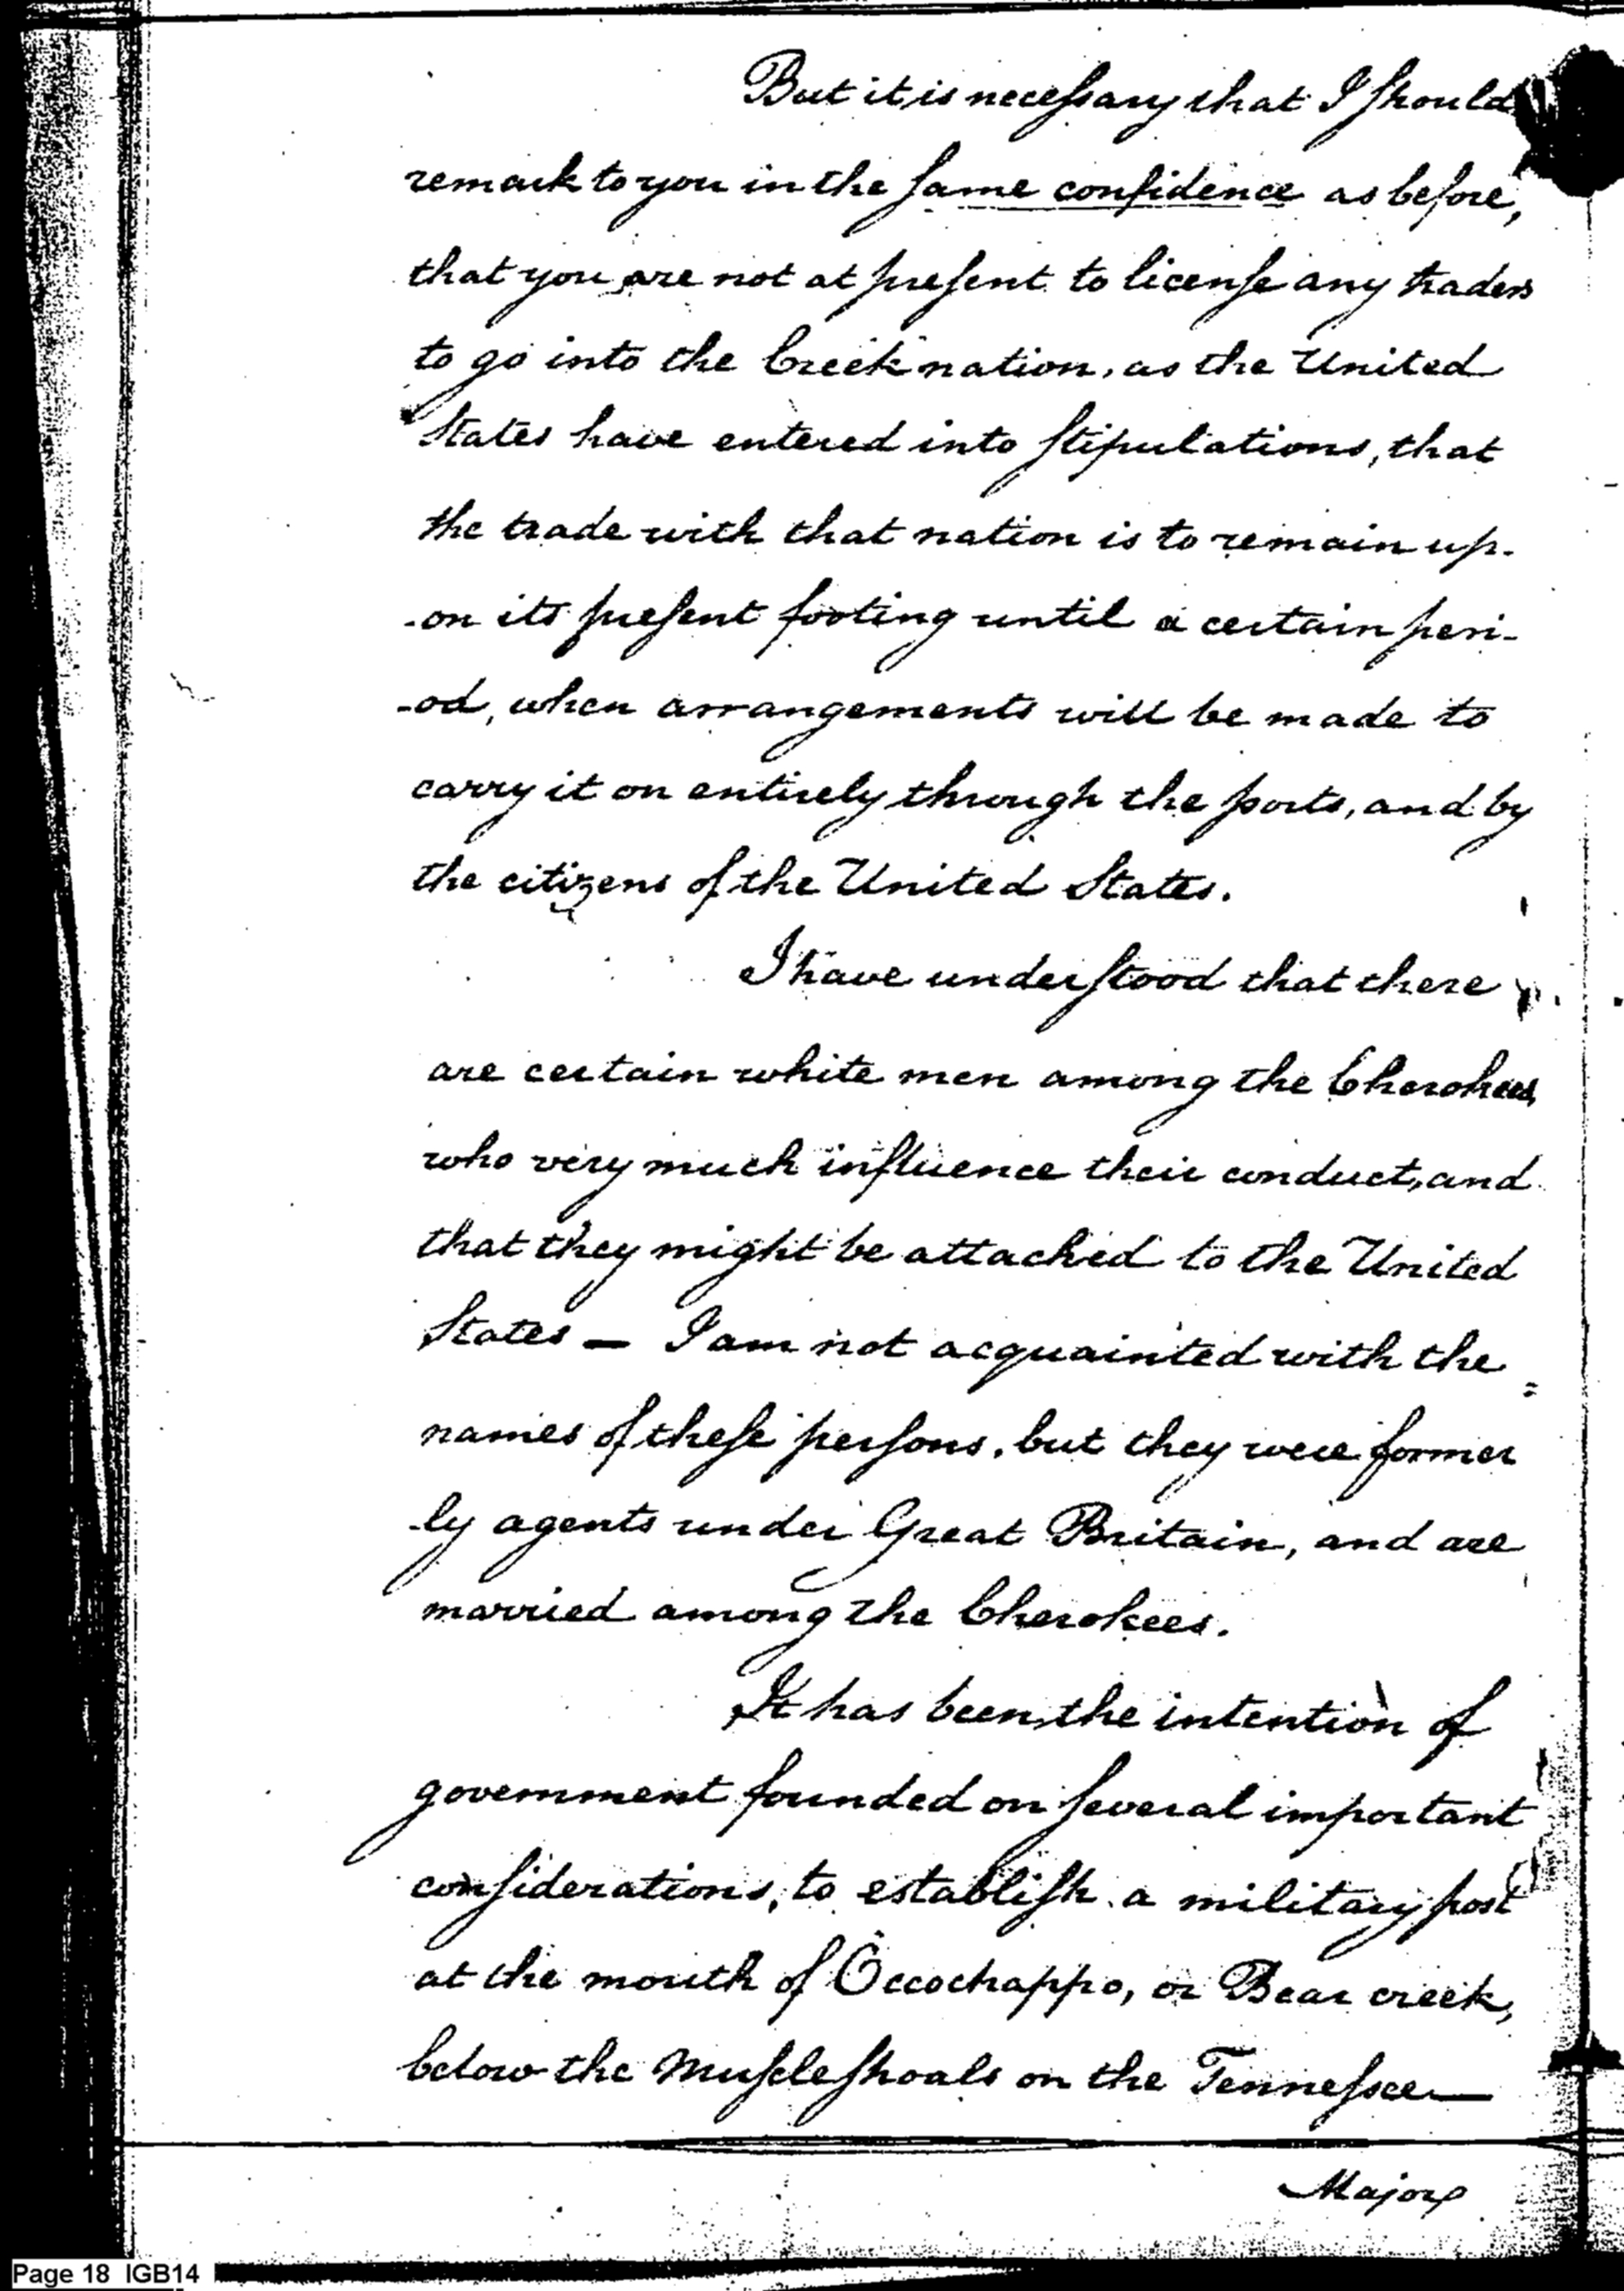 But it is necessary that I should
remark to you in the same confidence as before,
that you are not at present to license any traders
to go into the Creek nation, as the United
States have entered into stipulations, that
the trade with that nation is to remain up-
-on its present footing until a certain peri-
-od, when arrangements will be made to
carry it on entirely through the ports, and by
the citizens of the United States.
I have understood that there
are certain white men among the Cherokees,
who very much influence their conduct, and
that they might be attached to the United
States — I am not acquainted with the
names of these persons, but they were former
-ly agents under Great Britain, and are
married among the Cherokees.
It has been the intention of
government founded on several important
considerations, to establish a military post
at the mouth of Occochappo, or Bear creek,
below the Muscle shoals on the Tennessee—
Major
Page 18 IGB14